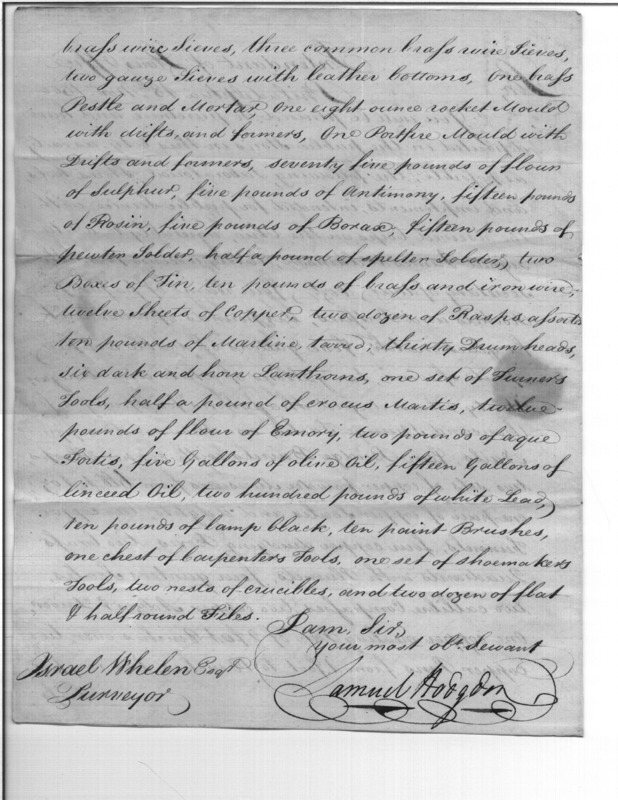 brass wire Sieves, three common brass wire Sieves,
two gauze Sieves with leather bottoms, One brass
Pestle and Mortar, One eight ounce rocket Mould
with drifts, and formers, One Portfire Mould with
Drifts and formers, seventy five pounds of flour
of Sulphur, five pounds of Antimony, fifteen pounds
of Rosin, five pounds of Borax, fifteen pounds of
pewter Solder, half a pound of spelter Solder, two
Boxes of Tin, ten pounds of brass and iron wire,
twelve Sheets of Copper, two dozen of Rasps assorts
ten pounds of Marline, tarred, thirty Drum heads,
six dark and horn Lanthorns, one set of Turners
Tools, half a pound of crocus Martis, twelve
pounds of flour of Emory, two pounds of aqua
Fortis, five Gallons of olive Oil, fifteen Gallons of
linceed Oil, two hundred pounds of white Lead,
ten pounds of lamp black, ten paint Brushes,
one chest of Carpenters Tools, one set of shoemakers
Tools, two nests of crucibles, and two dozen of flat
& half round Files.
I am, Sir,
your most obt. Servant
Samuel Hodgdon
Israel Whelen Esqr
Purveyor